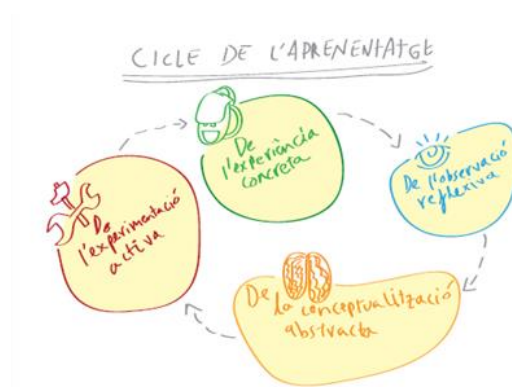 CICLE DE L'APRENENTATGE
De
l'experiència
concreta
De l'observació
reflexiva
De
la conceptualització
abstracta
De
l'experimentació
activa